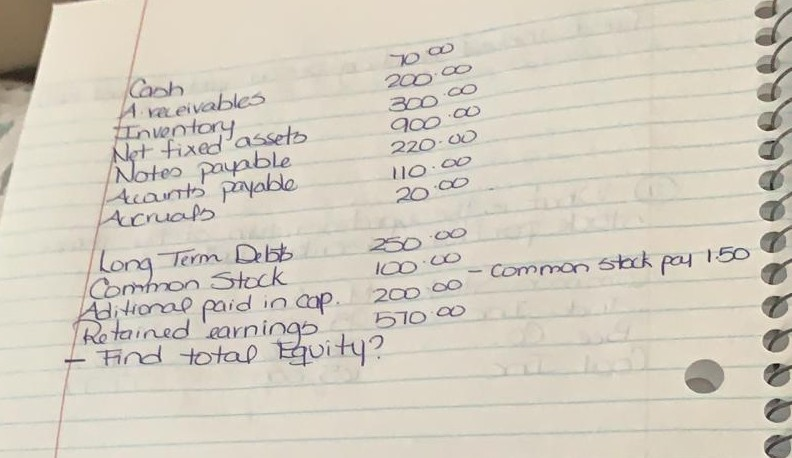 Cash 70.00
A. receivables 200.00
Inventory 300.00
Net fixed assets 900.00
Notes payable 220.00
Accounts payable 110.00
Accruals 20.00
Long Term Debt 250.00
Common Stock 100.00 - Common stock pay 1.50
Aditional paid in cap. 200.00
Retained earnings 570.00
- Find total Equity?